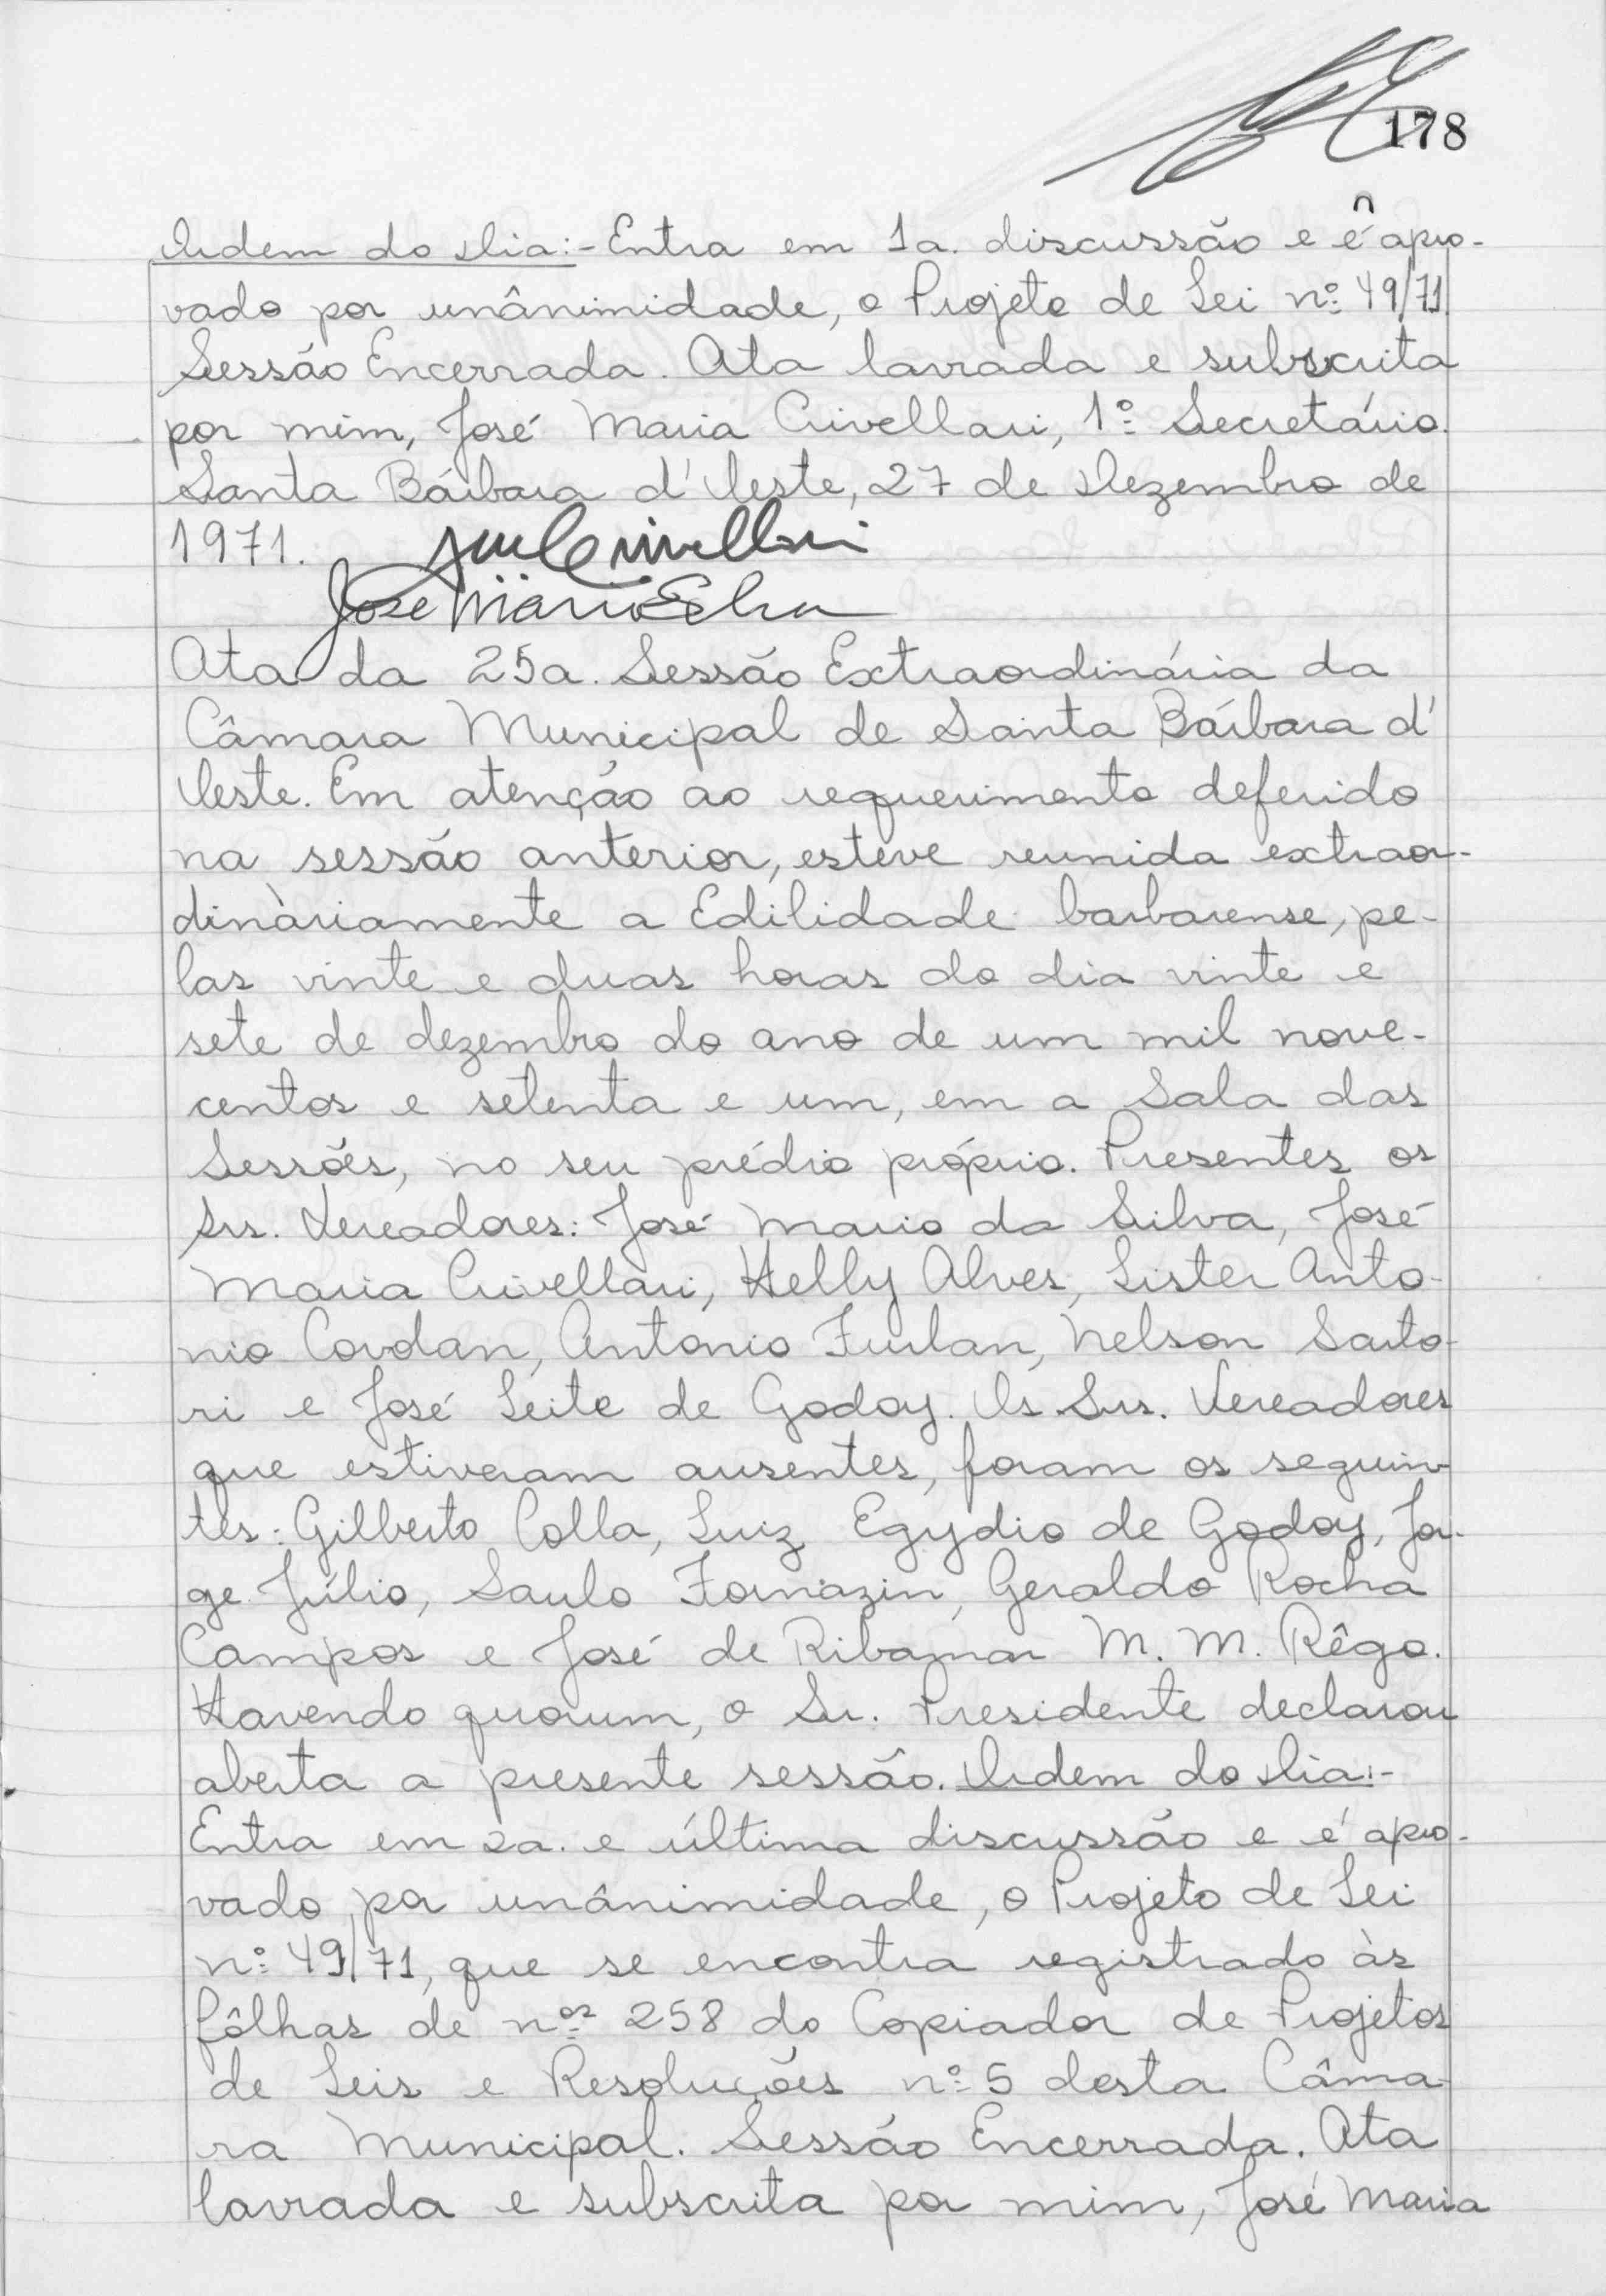 178
Ordem do Dia:- Entra em 1a. discussão e é apro-
vado por unânimidade, o Projeto de Lei nº 49/71.
Sessão Encerrada. Ata lavrada e subscrita
por mim, José Maria Crivellari, 1º Secretário.
Santa Bárbara d'Oeste, 27 de Dezembro de
1971.
Ata da 25a. Sessão Extraordinária da
Câmara Municipal de Santa Bárbara d'
Oeste. Em atenção ao requerimento deferido
na sessão anterior, estêve reunida extraor-
dinàriamente a Edilidade barbarense, pe-
las vinte e duas horas do dia vinte e
sete de dezembro do ano de um mil nove-
centos e setenta e um, em a Sala das
Sessões, no seu prédio próprio. Presentes os
Srs. Vereadores: José Mario da Silva, José
Maria Crivellari, Helly Alves, Lister Anto-
nio Covolan, Antonio Furlan, Nelson Sarto-
ri e José Leite de Godoy. Os Srs. Vereadores
que estiveram ausentes, foram os seguin-
tes: Gilberto Colla, Luiz Egydio de Godoy, Jor-
ge Júlio, Saulo Fornazin, Geraldo Rocha
Campos e José de Ribamar M. M. Rêgo.
Havendo quorum, o Sr. Presidente declarou
aberta a presente sessão. Ordem do Dia:-
Entra em 2a. e última discussão e é apro-
vado por unânimidade, o Projeto de Lei
nº 49/71, que se encontra registrado às
fôlhas de nos 258 do Copiador de Projetos
de Leis e Resoluções nº 5 desta Câma-
ra Municipal. Sessão Encerrada. Ata
lavrada e subscrita por mim, José Maria